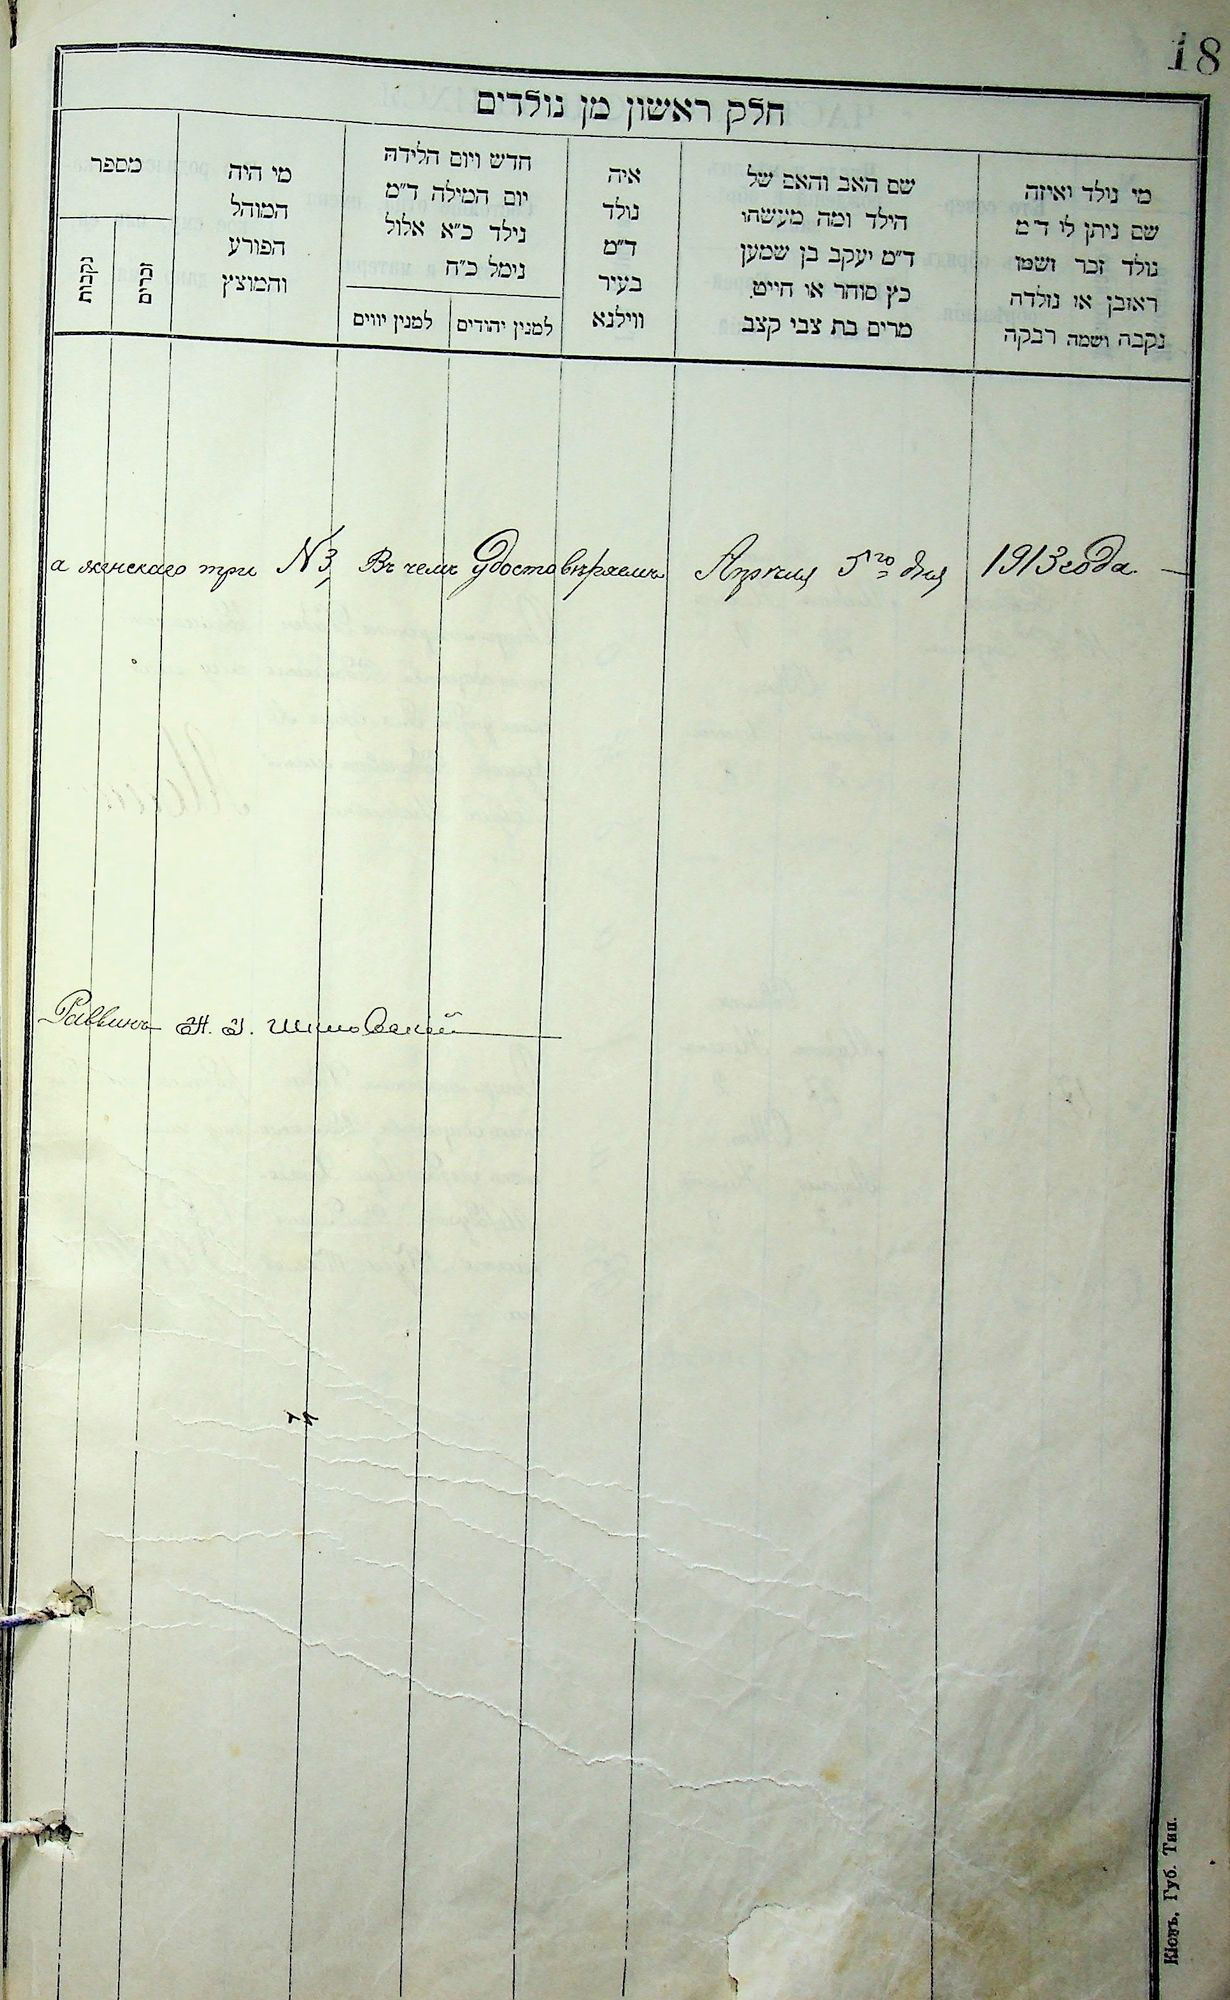 18
חלק ראשון מן נולדים
מי נולד ואיזה
שם ניתן לו ד״מ
נולד זכר ושמו
ראובן או נולדה
נקבה ושמה רבקה
שם האב והאם של
הילד ומה מעשהו
ד״מ יעקב בן שמעון
כץ סוחר או חייט
מרים בת צבי קצב
איה
נולד
ד״מ
בעיר
ווילנא
חדש ויום הלידה
יום המילה ד״מ
נילד כ״א אלול
נימל כ״ח
למנין יהודים
למנין יווים
מי היה
המוהל
הפורע
והמוצץ
מספר
זכרים
נקבות
а женскаго три №3, Въ чемъ удостовѣряемъ Апрѣля 5го дня 1913 года.
Раввинъ
Кіевъ, Губ. Тип.